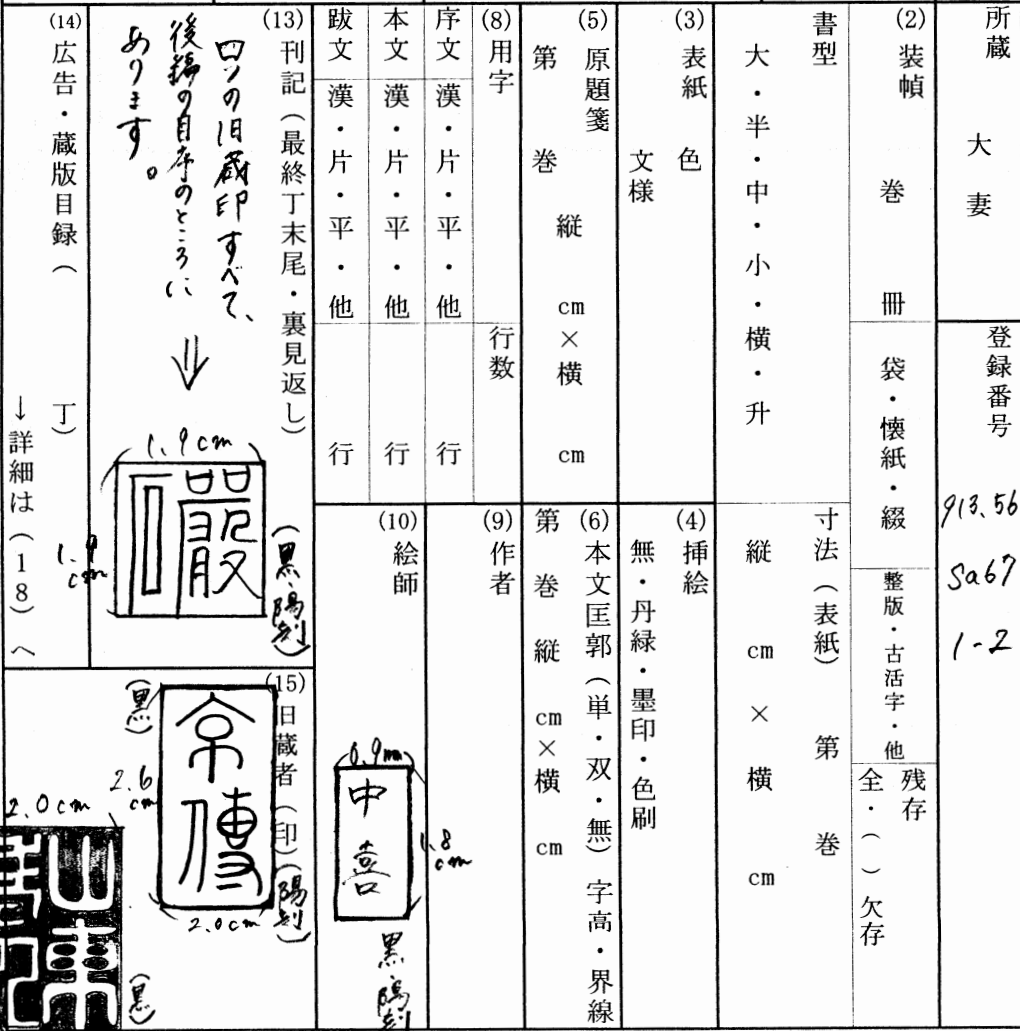 所蔵　大妻
登録番号　913.56 Sa67 1-2
(2) 装幀　巻　冊
袋・懐紙・綴
整版・古活字・他
残存
全・（　）欠存
書型
大・半・中・小・横・升
寸法（表紙）第　巻
縦　cm×横　cm
(3) 表紙　色
文様
(4) 挿絵
無・丹緑・墨印・色刷
(5) 原題箋
第　巻　縦　cm×横　cm
(6) 本文匡郭（単・双・無）字高・界線
第　巻　縦　cm×横　cm
(8) 用字　行数
序文　漢・片・平・他　行
本文　漢・片・平・他　行
跋文　漢・片・平・他　行
(9) 作者
(10) 絵師
0.9cm
1.8cm
中喜
黒・陽刻
(13) 刊記（最終丁末尾・裏見返し）
四つの旧蔵印すべて、
後編の自序のところに
あります。
1.9cm
1.9cm
（黒・陽刻）
(14) 広告・蔵版目録（　丁）
→詳細は（18）へ
(15) 旧蔵者（印）（陽刻）
京傳
2.6cm
2.0cm
（黒）
2.0cm
（黒）